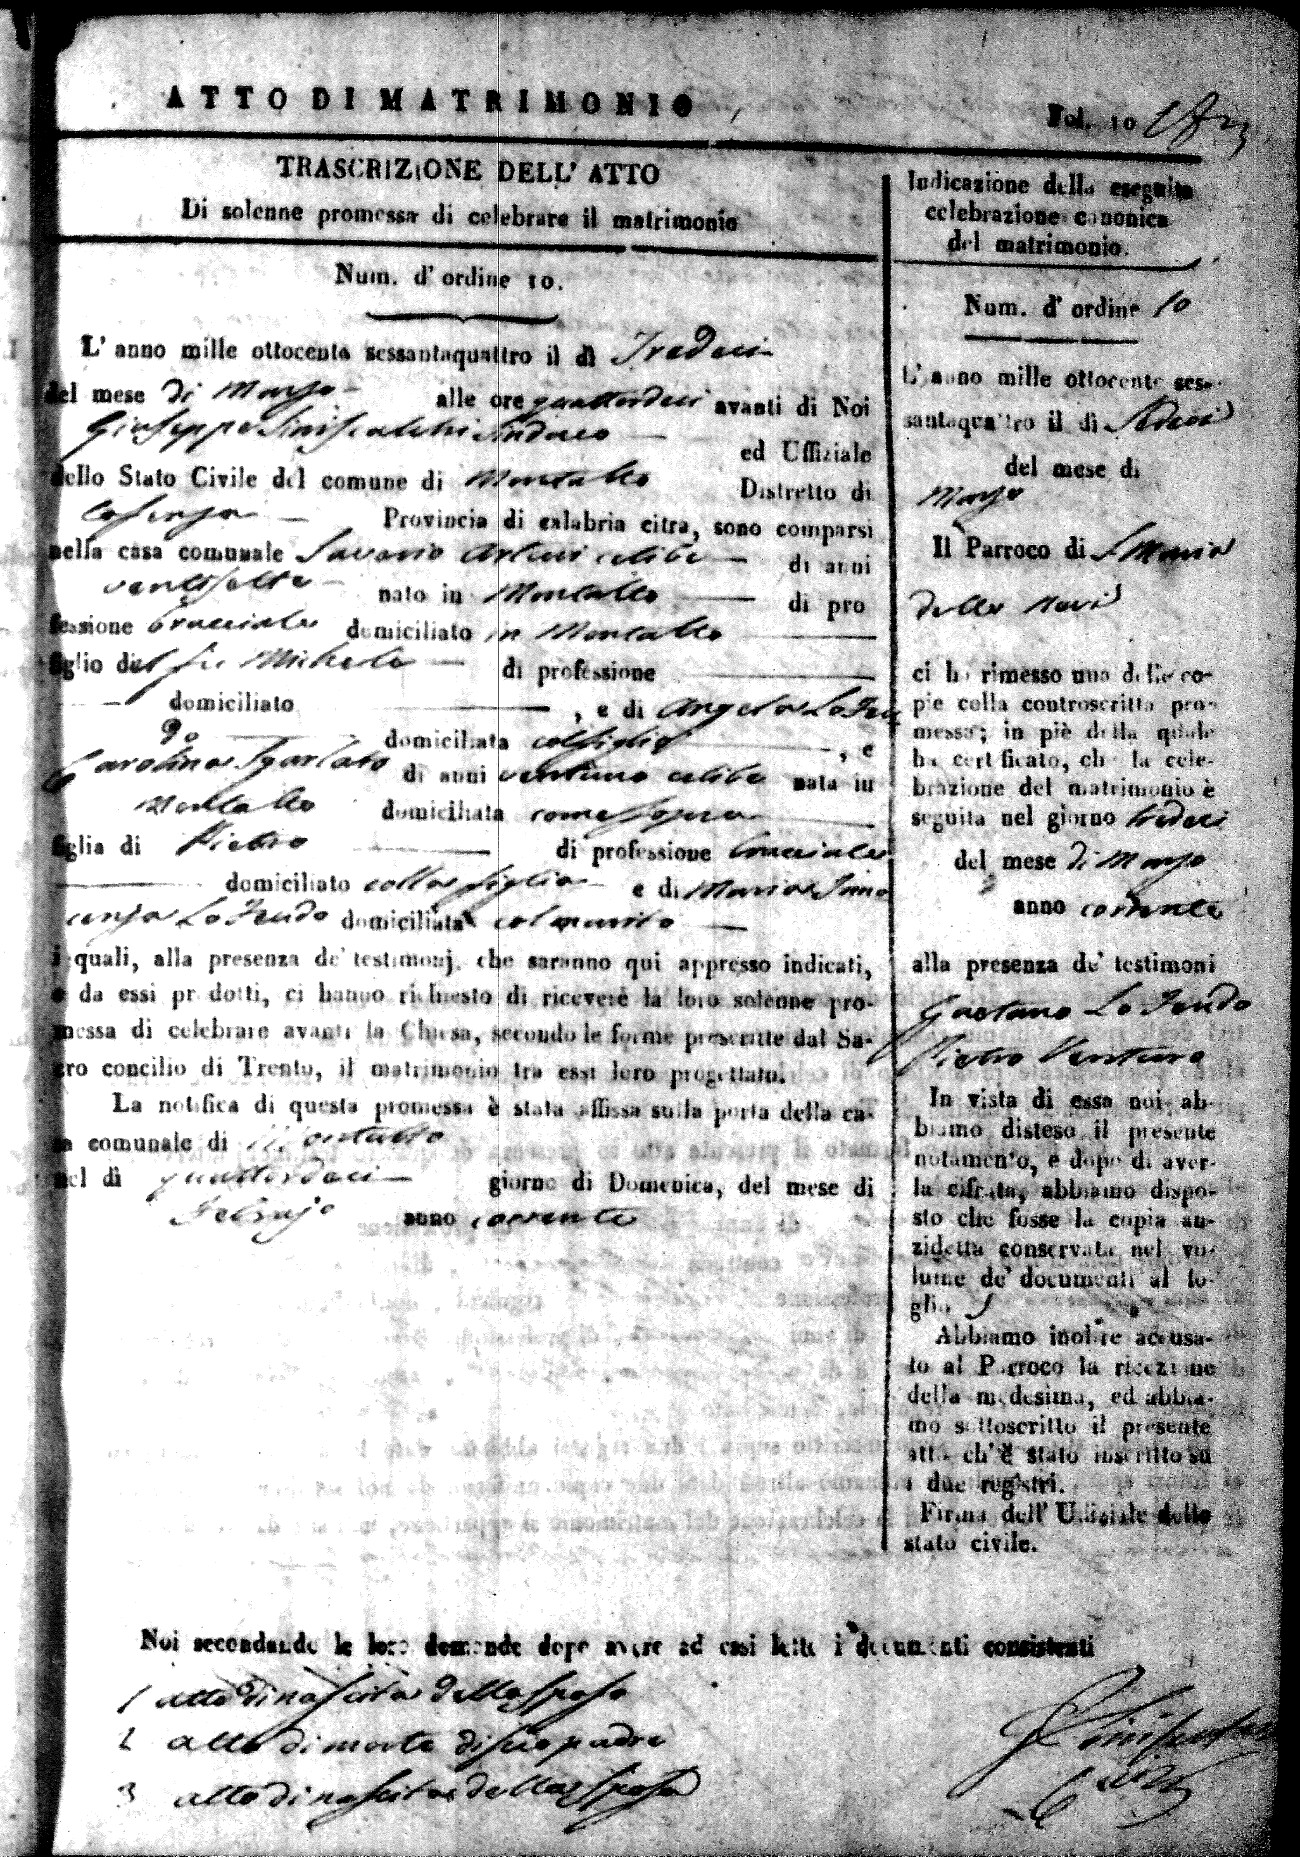 ATTO DI MATRIMONIO
Fol. 10
TRASCRIZIONE DELL' ATTO
Di solenne promessa di celebrare il matrimonio
Num. d' ordine 10.
L' anno mille ottocento sessantaquattro il dì Tredeci
del mese di Marzo alle ore quattordeci avanti di Noi
Giuseppe Siniscalchi Sindaco ed Uffiziale
dello Stato Civile del comune di Montalto Distretto di
Cosenza Provincia di calabria citra, sono comparsi
nella casa comunale Saverio Arturi celibe di anni
ventisette nato in Montalto di pro
fessione bracciale domiciliato in Montalto
figlio del fu Michele di professione
domiciliato , e di Angela Lo Feu
do domiciliata col figlio , e
Carolina Sgarlato di anni ventuno celibe nata in
Montalto domiciliata come sopra
figlia di Pietro di professione bracciale
domiciliato colla figlia e di Maria Inno
cenza Lo Feudo domiciliata col marito
i quali, alla presenza de' testimonj, che saranno qui appresso indicati,
e da essi prodotti, ci hanno richiesto di ricevere la loro solenne pro-
messa di celebrare avanti la Chiesa, secondo le forme prescritte dal Sa-
gro concilio di Trento, il matrimonio tra essi loro progettato.
La notifica di questa promessa è stata affissa sulla porta della ca-
sa comunale di Montalto
nel dì quattordeci giorno di Domenica, del mese di
Febrajo anno corrente
Indicazione della eseguita
celebrazione canonica
del matrimonio.
Num. d' ordine 10
L' anno mille ottocento ses-
santaquattro il dì Sedeci
del mese di
Marzo
Il Parroco di S. Maria
della
ci ha rimesso una delle co-
pie colla controscritta pro-
messa; in piè della quale
ha certificato, che la cele-
brazione del matrimonio è
seguita nel giorno tredeci
del mese di Marzo
anno corrente
alla presenza de' testimoni
Gaetano Lo Feudo
Pietro Ventura
In vista di essa noi ab-
biamo disteso il presente
notamento, e dopo di aver-
la cifrata, abbiamo dispo-
sto che fosse la copia an-
zidetta conservata nel vo-
lume de' documenti al fo-
glio
Abbiamo inoltre accusa-
to al Parroco la ricezione
della medesima, ed abbia-
mo sottoscritto il presente
atto ch' è stato inscritto su
i due registri.
Firma dell' Uffiziale dello
stato civile.
Noi secondando le loro domande dopo avere ad essi letti i documenti consistenti
1 atto di nascita dello sposo
2 atto di morte di suo padre
3 atto di nascita della sposa